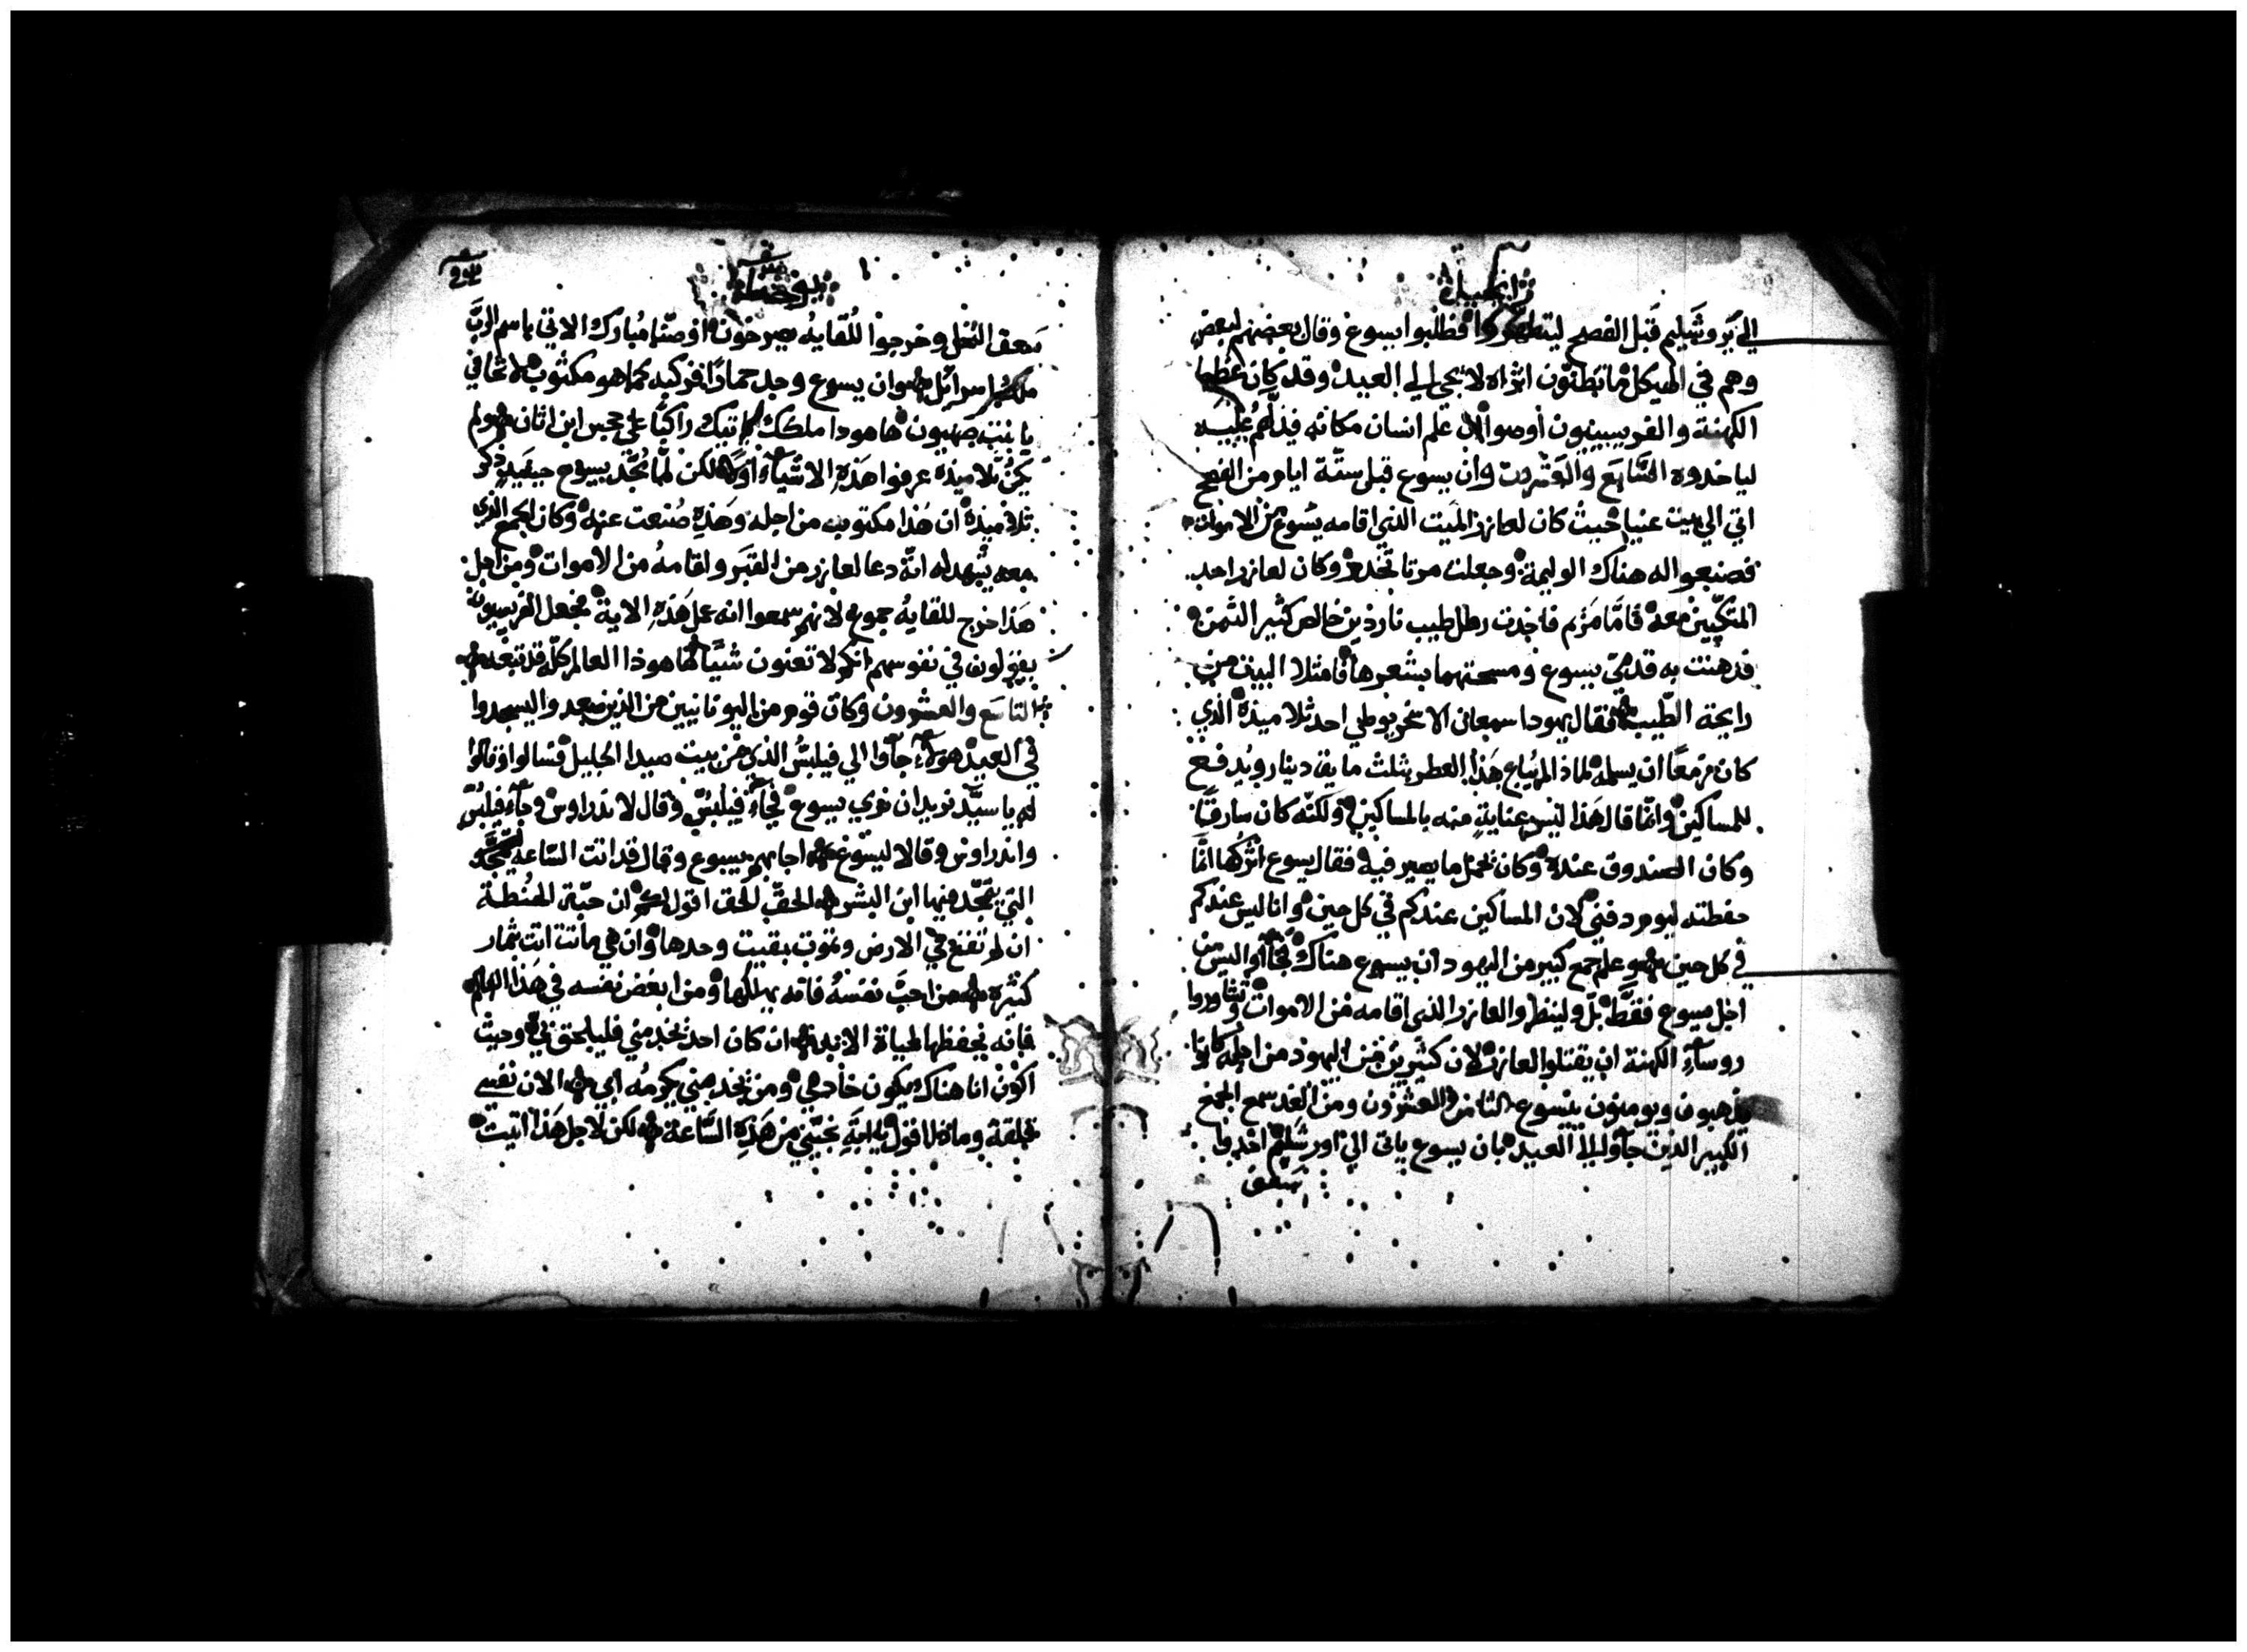 انجيل
الي يروشليم قبل الفصح ليتطهروا فطلبوا يسوع وقال بعضهم لبعض
وهم في الهيكل ما تظنون اتراه لا يجي الي العيد وقد كان عظما
الكهنة والفريسيون اوصوا ان علم انسان مكانه فيدلهم عليه
لياخذوه السابع والعشرون وان يسوع قبل ستة ايام من الفصح
اتي الي بيت عنيا حيث كان لعازر الميت الذي اقامه يسوع من الاموات
فصنعوا له هناك الوليمة وجعلت مرتا تخدم وكان لعازر احد
المتكيين معه فاما مريم فاخذت رطل طيب ناردين خالص كثير الثمن
فدهنت به قدمي يسوع ومسحتهما بشعرها فامتلا البيت من
رايحة الطيب فقال يهودا سمعان الاسخريوطي احد تلاميذه الذي
كان مزمعا ان يسلمه لماذا لم يباع هذا العطر بثلث ماية دينار ويدفع
للمساكين وانما قال هذا ليس عناية منه بالمساكين ولكنه كان سارقا
وكان الصندوق عنده وكان يحمل ما يصير فيه فقال يسوع اتركها انما
حفظته ليوم دفني لان المساكين عندكم في كل حين وانا ليس عندكم
في كل حين وعلم جمع كبير من اليهود ان يسوع هناك فجآوا ليس من
اجل يسوع فقط بل ولينظروا لعازر الذي اقامه من الاموات وتشاوروا
روسآء الكهنة ان يقتلوا لعازر لان كثيرين من اليهود من اجله كانوا
يذهبون ويومنون بيسوع الثامن والعشرون ومن الغد سمع الجمع
الكبير الذين جآوا الي العيد بان يسوع ياتي الي اورشليم اخذوا
سعف
يوحنا
سعف النخل وخرجوا للقايه يصرخون اوصنا مبارك الاتي باسم الرب
ملك اسرائيل وان يسوع وجد حمارا فركبه كما هو مكتوب لا تخافي
يا بنت صهيون هاهوذا ملكك ياتيك راكبا علي جحس ابن اتان ولم
يكن تلاميذه عرفوا هذه الاشياء اولا لكن لما مجد يسوع حينيذ ذكر
تلاميذه ان هذا مكتوب من اجله وهذه صنعت عنه وكان الجمع الذي
معه يشهد له انه دعا لعازر من القبر واقامه من الاموات ومن اجل
هذا خرج للقايه جموع لانهم سمعوا انه عمل هذه الاية فجعل الفريسيون
يقولون في نفوسهم انكم لا تعنون شيا هاهوذا العالم كله قد تبعه
التاسع والعشرون وكان قوم من اليونانيين من الذين صعدوا ليسجدوا
في العيد هولاء جآوا الي فيلبس الذي من بيت صيدا الجليل فسالوا وقالوا
له يا سيد نريد ان نري يسوع فجآء فيلبس وقال لاندراوس وجآء فيلبس
واندراوس وقالا ليسوع اجابهم يسوع وقال قد اتت الساعه
التي يتمجد فيها ابن البشر الحق الحق اقول لكم ان حبة الحنطة
ان لم تقع في الارض وتموت بقيت وحدها وان هي ماتت اتت بثمار
كثيرة من احب نفسه فانه يهلكها ومن ابغض نفسه في هذا العالم
فانه يحفظها لحياة الابد ان كان احد يخدمني فليلحق بي وحيث
اكون انا هناك يكون خادمي ومن يخدمني يكرمه ابي الان نفسي
قلقة وماذا اقول يا ابة نجيني من هذه الساعة لكن لاجل هذا اتيت